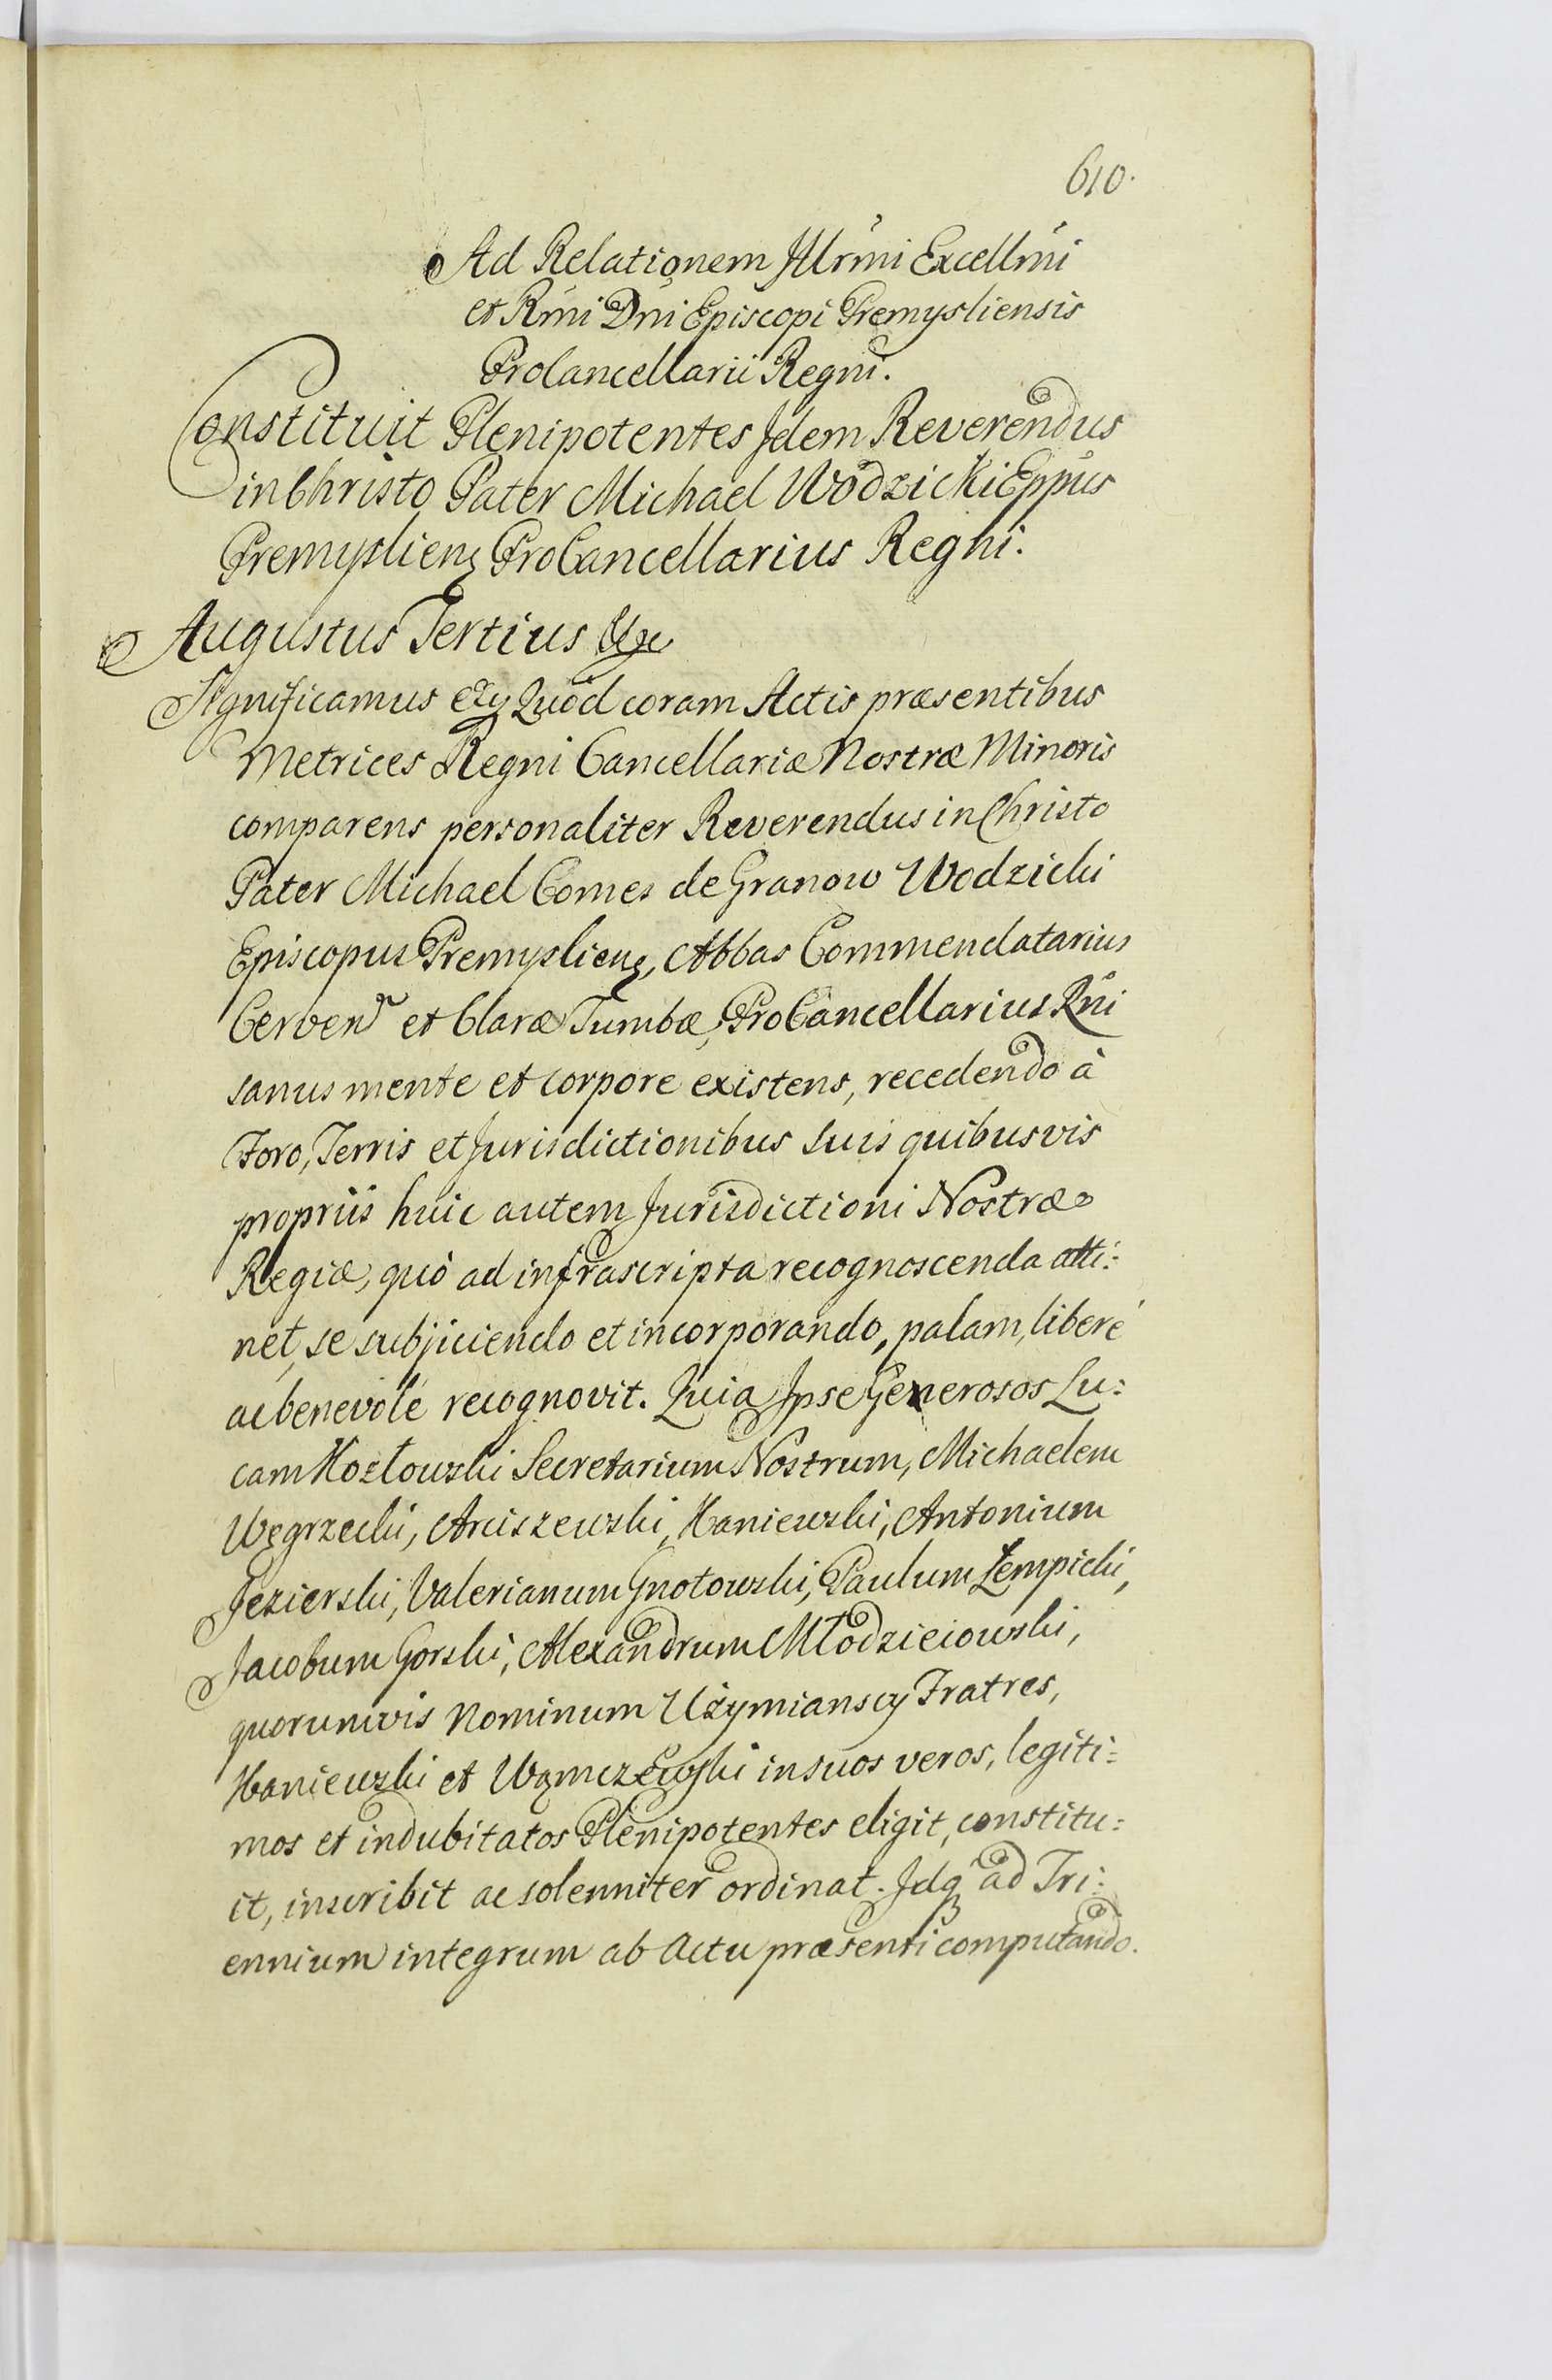 610.
Ad Relationem Illrmi Excellmi
et Rmi Dni Episcopi Premysliensis
ProCancellarii Regni.
Constituit Plenipotentes Idem Reverendus
in Christo Pater Michael Wodzicki Eppus
Premysliens ProCancellarius Regni.
Augustus Tertius &c
Significamus &c Quod coram Actis præsentibus
Metrices Regni Cancellariæ Nostræ Minoris
comparens personaliter Reverendus in Christo
Pater Michael Comes de Granow Wodzicki
Episcopus Premysliens, Abbas Commendatarius
Cerven et Claræ Tumbæ, ProCancellarius Rni
sanus mente et corpore existens, recedendo à
Foro, Terris et Jurisdictionibus suis quibusvis
propriis huic autem Jurisdictioni Nostræ
Regiæ, quò ad infrascripta recognoscenda atti:
net, se subjiciendo et incorporando, palam, liberè
ac benevolè recognovit. Quia Ipse Generosos Lu:
cam Kozłowski Secretarium Nostrum, Michaelem
Węgrzecki, Arciszewski, Kaniewski, Antonium
Jezierski, Valerianum Gnotowski, Paulum Łempicki,
Jacobum Gorski, Alexandrum Młodzieiowski,
quorumvis Nominum Użymianscy Fratres,
Kaniewski et Wąmczewski in suos veros, legiti:
mos et indubitatos Plenipotentes eligit, constitu:
it, inscribit ac solenniter ordinat. Idq ad Tri:
ennium integrum ab Actu præsenti computando.